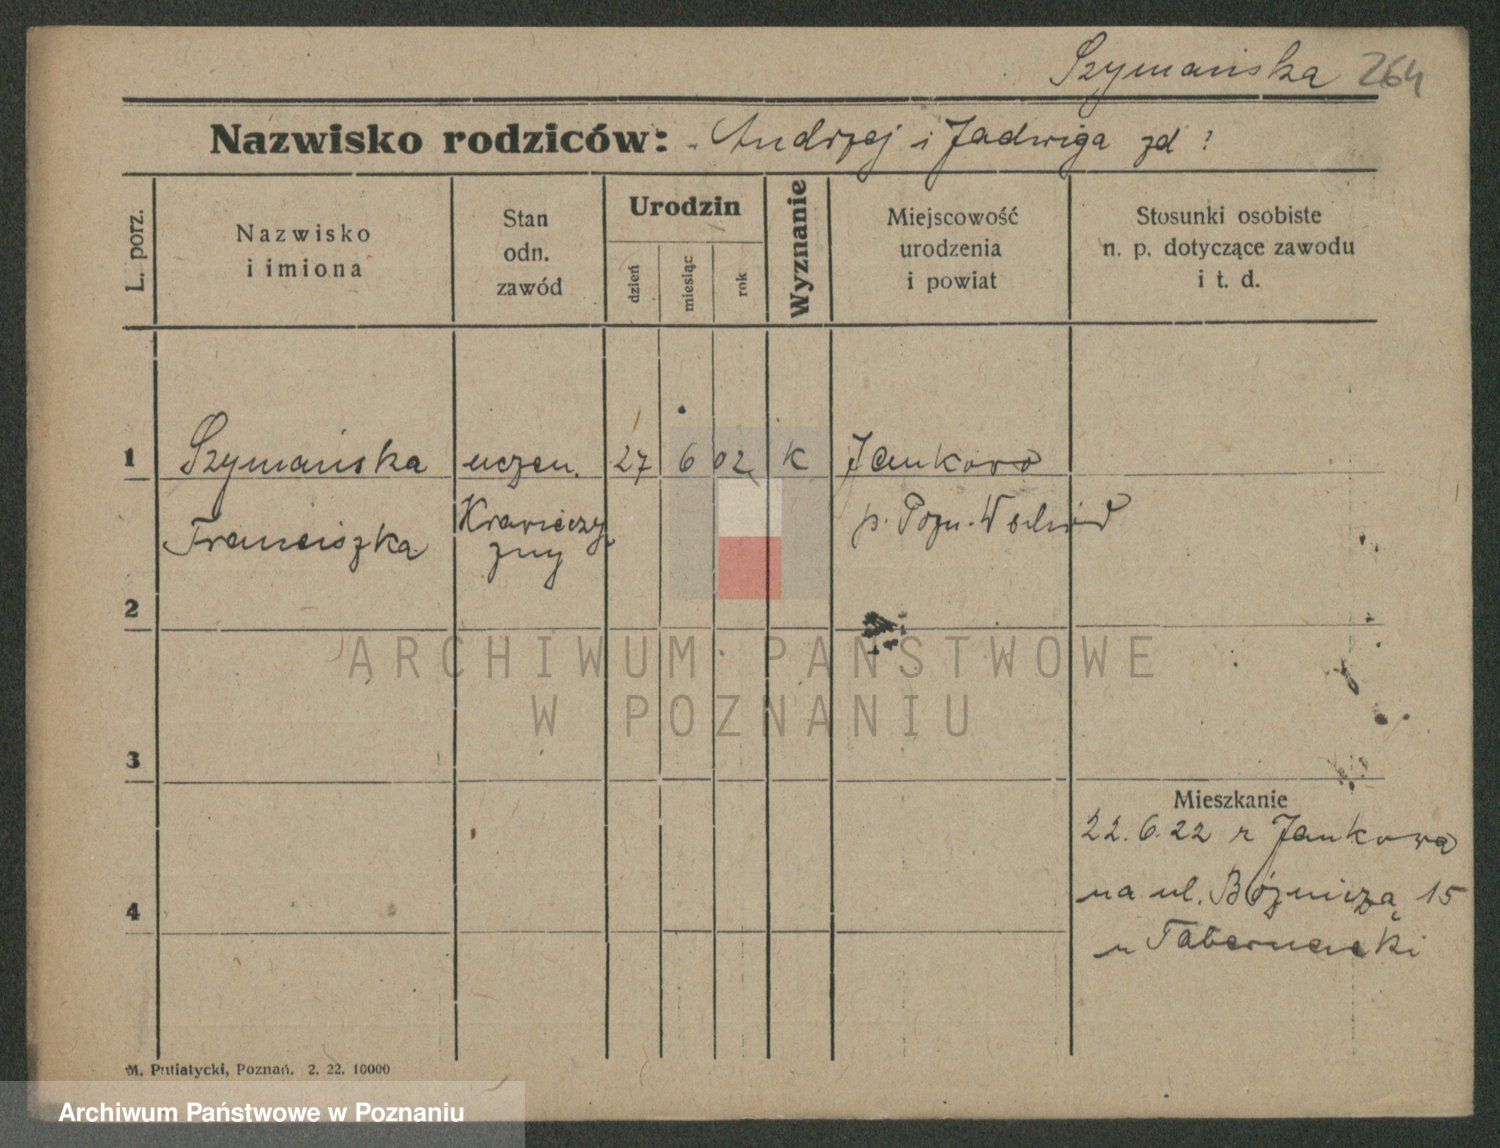 Szymańska 264
Nazwisko rodziców: Andrzej i Jadwiga zd ?
L. porz.
Nazwisko
i imiona
Stan
odn.
zawód
Urodzin
dzień
miesiąc
rok
Wyznanie
Miejscowość
urodzenia
i powiat
Stosunki osobiste
n. p. dotyczące zawodu
i t. d.
1 Szymańska uczen. 27 6 02 K Jankowo
Franciszka Krawieczy p. Pozn. Wschód
zny
2
ARCHIWUM PAŃSTWOWE
W POZNANIU
3
Mieszkanie
22.6.22 z Jankowa
na ul. Bóżniczą 15
4
u Tabernacki
M. Putiatycki, Poznań. 2. 22. 10000
Archiwum Państwowe w Poznaniu